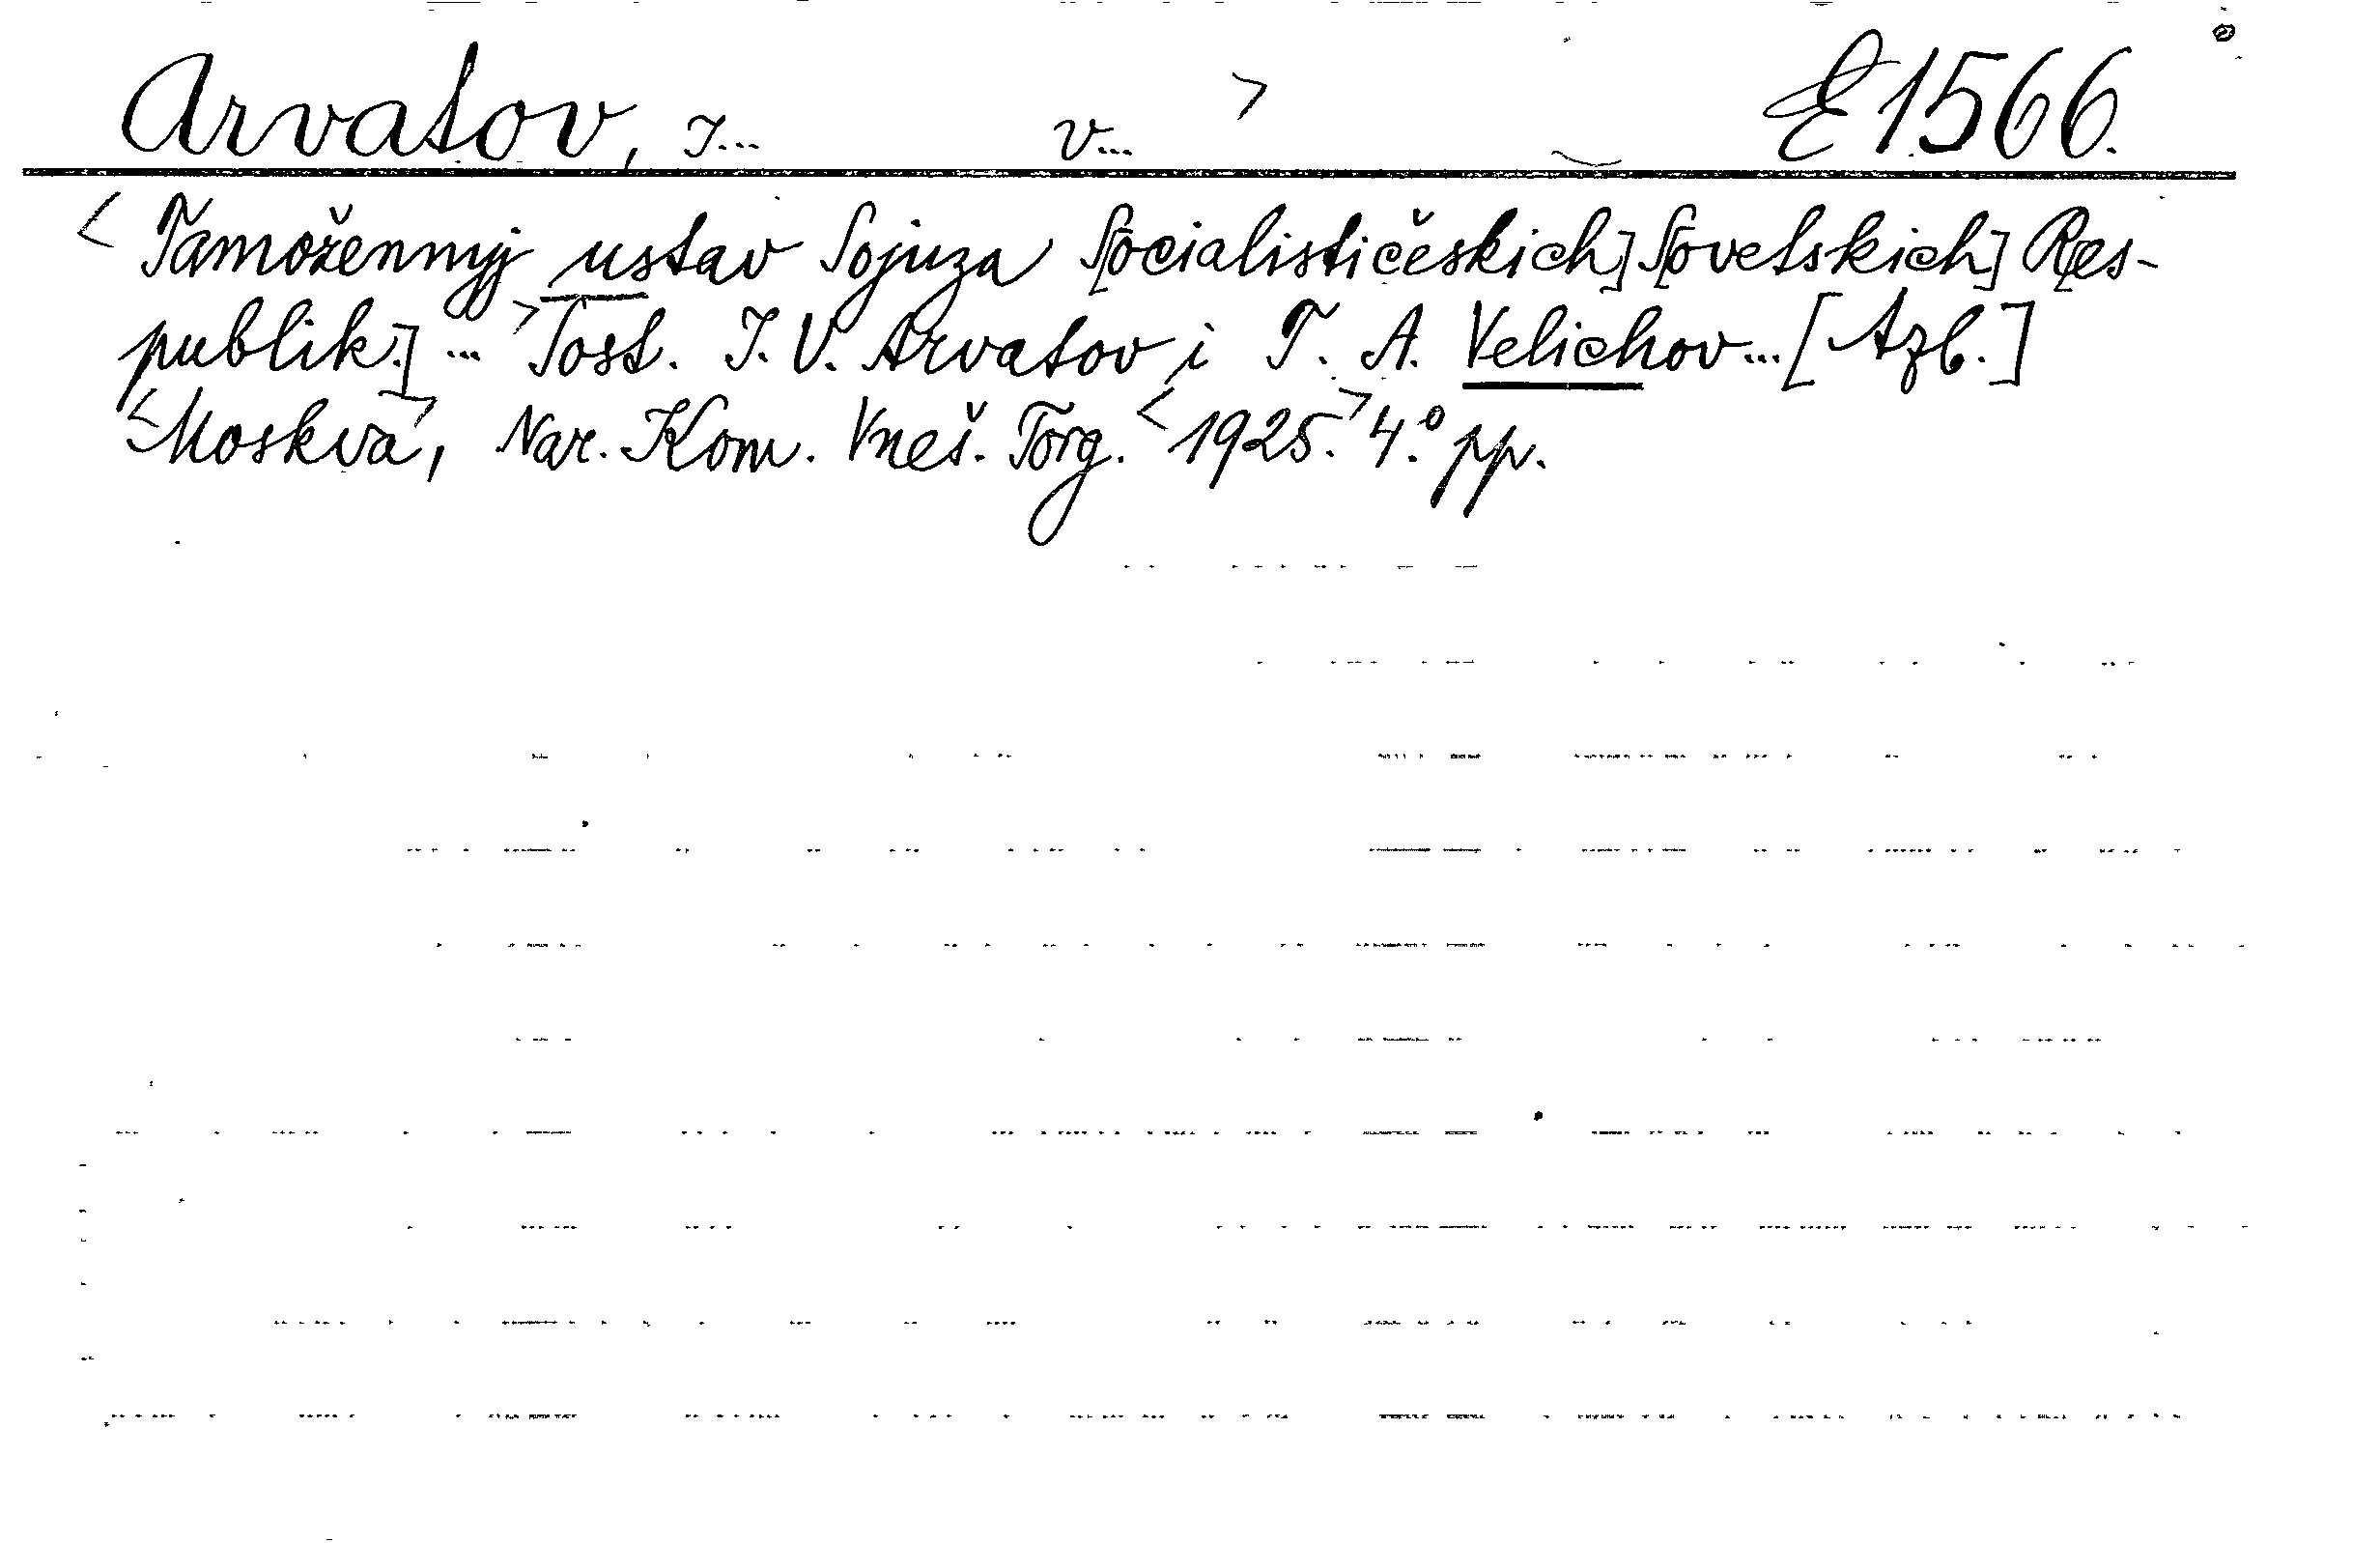 Arvatov, I... V...> E 1566.
<Tamožennyj ustav Sojuza S[ocialističeskich] S[ovetskich] R[es-
publik.] ...> Sost. I. V. Arvatov i T. A. Velichov... [Azb.]
<Moskva>, Nar. Kom. Vneš. Torg. <1925.> 4.º pp.